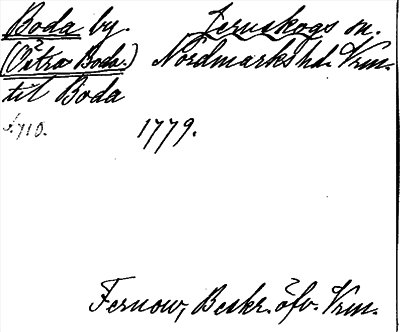 Boda by. Jernskogs sn.
(Östra Boda.) Nordmarks hd. Vrm.
till Boda
s. 710. 1779.
Fernow, Beskr. öfv. Vrm.